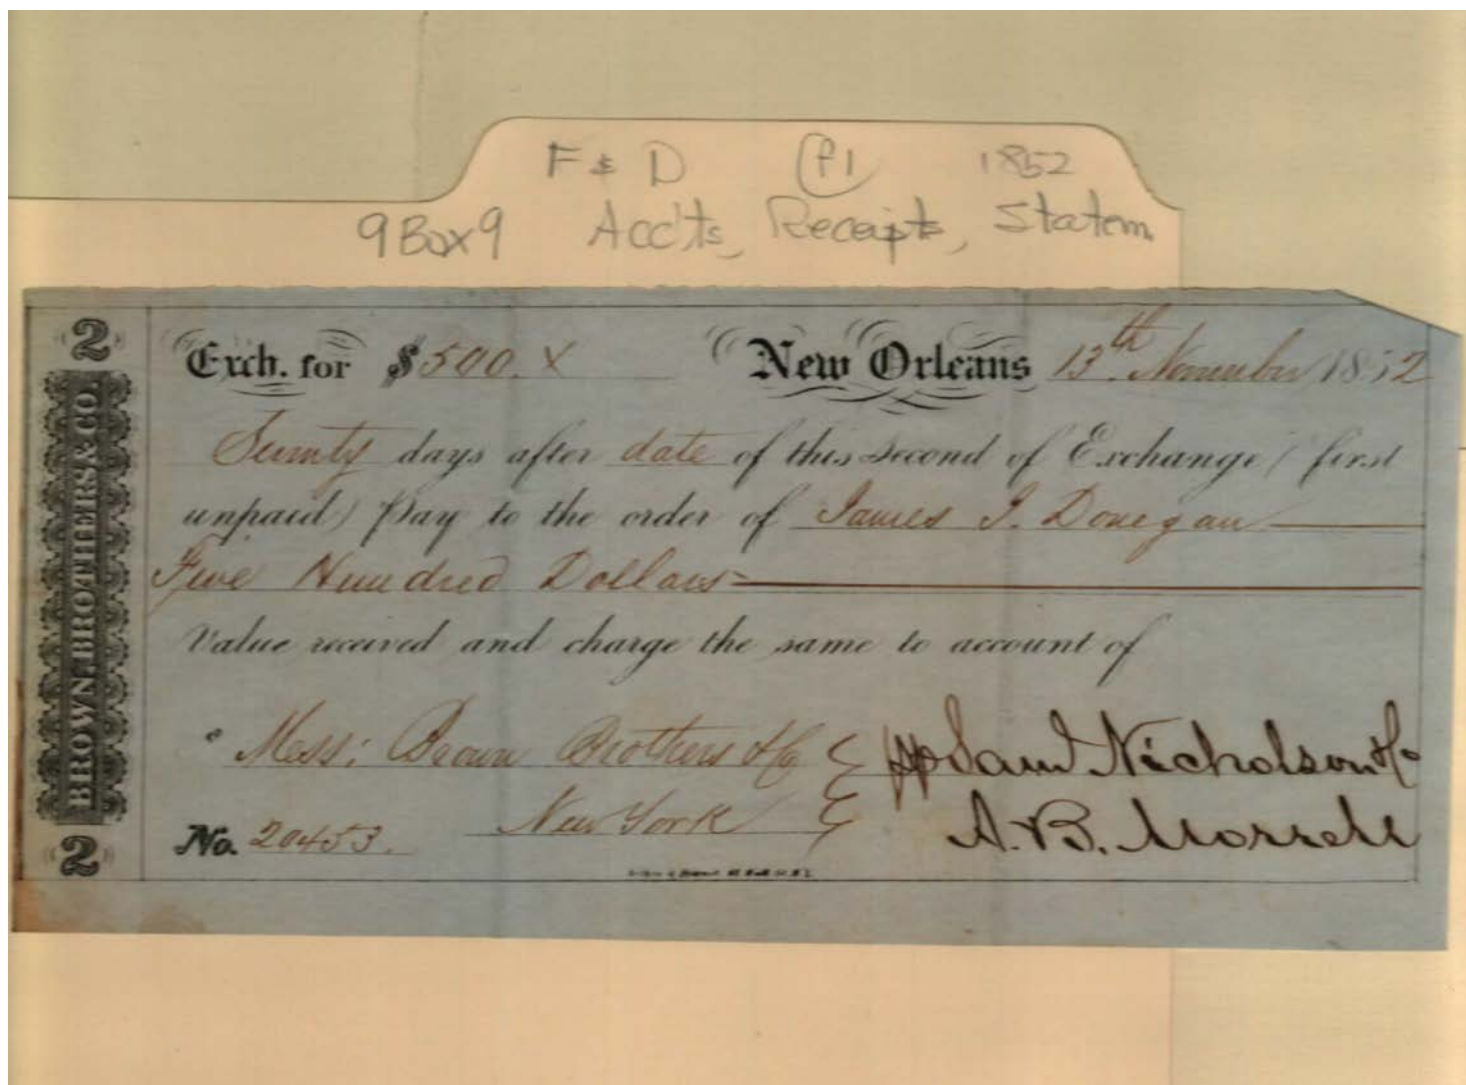 F & D P1 1852
9 Box 9 Acc'ts, Receipts, Statem
2
BROWN BROTHERS & CO.
2
Exch. for $ 500. X New Orleans 13th November 1852
days after date of this second of Exchange (first
unpaid) Pay to the order of James J. Donegan
Five Hundred Dollars
Value received and charge the same to account of
Mess: Brown Brothers & Co pp Saml Nicholson & Co
New York
No. 20453. A. B. Morrell